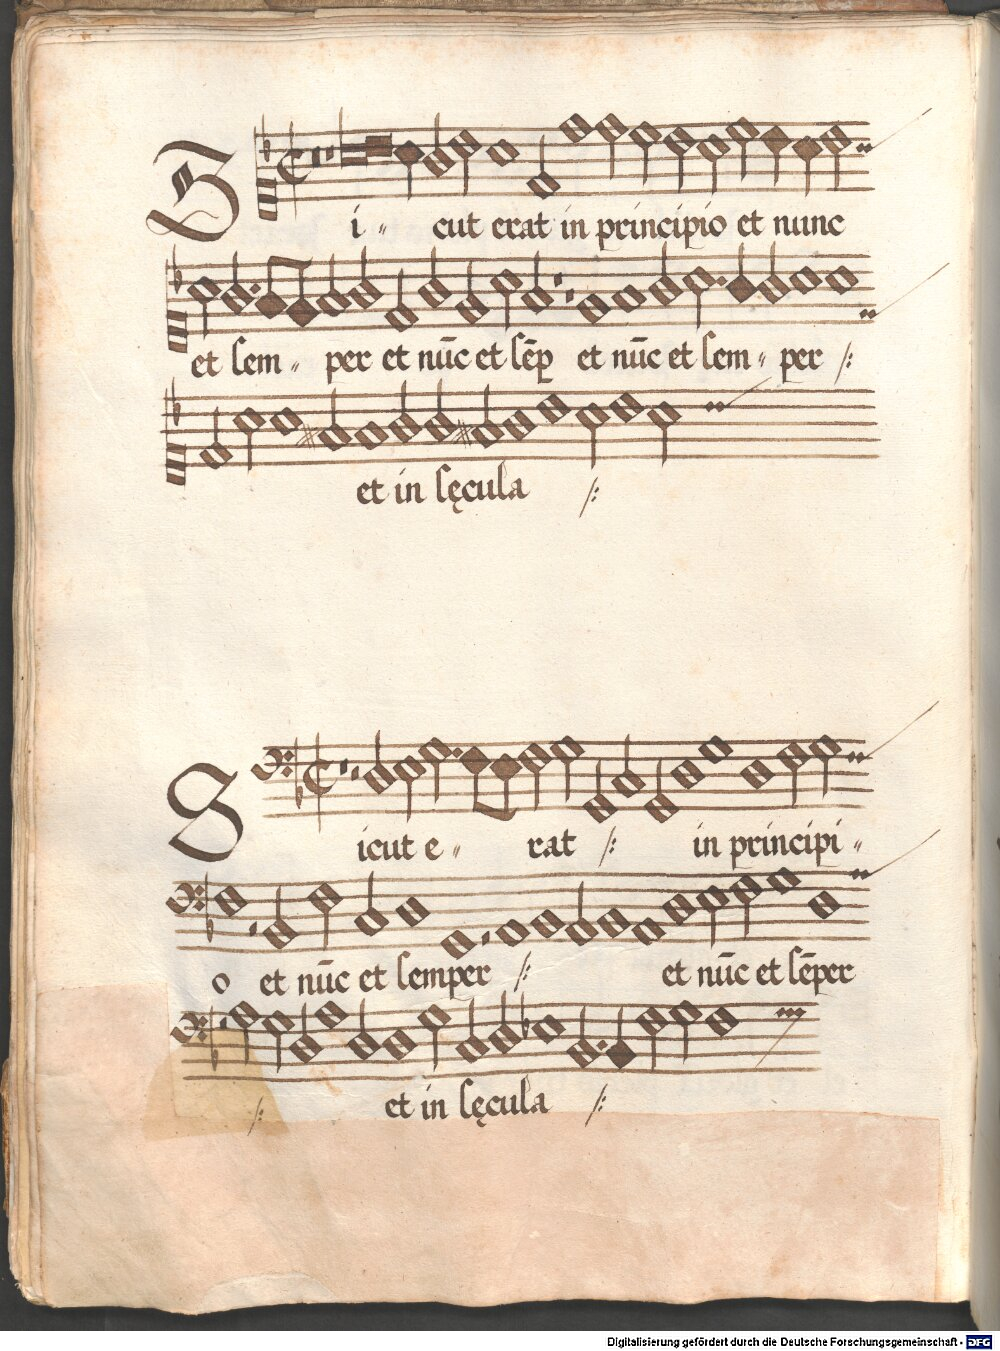 Si〃 cut erat in principio et nunc
et sem〃 per et nūc et sēp et nūc et sem〃 per :/:
et in sęcula :/:
Sicut e〃 rat :/: in principi〃
o et nūc et semper :/: et nūc et sēper
:/: et in sęcula :/:
Digitalisierung gefördert durch die Deutsche Forschungsgemeinschaft - DFG